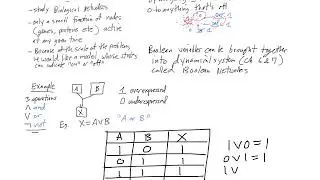 - study Biological Networks
- only a small fraction of nodes
(genes, proteins etc) active
at any given time
- Because of the scale of the problem,
we would like a model whose states
can indicate "on" or "off"
0 to anything that's off
Boolean variables can be brought together
into dynamical system (Ch 6 & 7)
called Boolean Networks
Example
3 operations
∧ and
∨ or
¬ not
A B
X
1 overexpressed
0 underexpressed
Eg. X = A∨B "A or B"
A B X
1 0 1
0 1 1
1 1 1
1∨0=1
0∨1=1
1∨